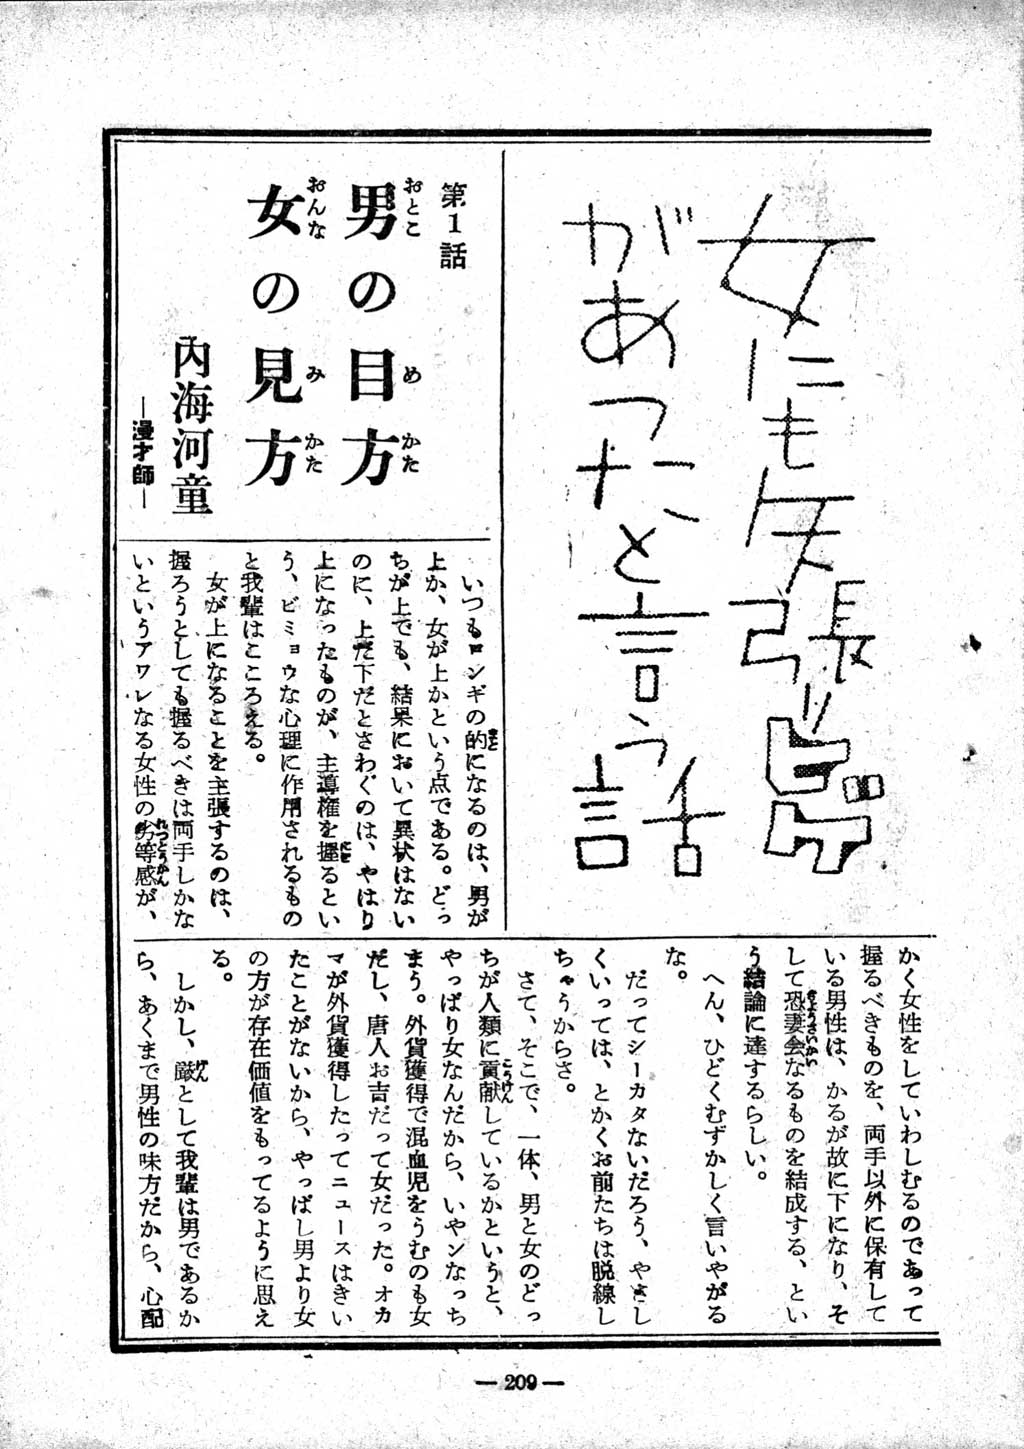 女にも矢張りヒゲ
があったと言う話
第1話
男の目方
女の見方
内海河童
―漫才師―
いつもロンギの的になるのは、男が
上か、女が上かという点である。どっ
ちが上でも、結果において異状はない
のに、上だ下だとさわぐのは、やはり
上になったものが、主導権を握るとい
う、ビミョウな心理に作用されるもの
と我輩はところえる。
女が上になることを主張するのは、
握ろうとしても握るべきは両手しかな
いというアワレなる女性の劣等感が、
かく女性をしていわしむるのであって
握るべきものを、両手以外に保有して
いる男性は、かるが故に下になり、そ
して恐妻会なるものを結成する、とい
う結論に達するらしい。
へん、ひどくむずかしく言いやがる
な。
だってシーカタないだろう、やさし
くいっては、とかくお前たちは脱線し
ちゃうからさ。
さて、そこで、一体、男と女のどっ
ちが人類に貢献しているかというと、
やっぱり女なんだから、いやンなっち
まう。外貨獲得で混血児をうむのも女
だし、唐人お吉だって女だった。オカ
マが外貨獲得したってニュースはきい
たことがないから、やっぱし男より女
の方が存在価値をもってるように思え
る。
しかし、厳として我輩は男であるか
ら、あくまで男性の味方だから、心配
― 209 ―